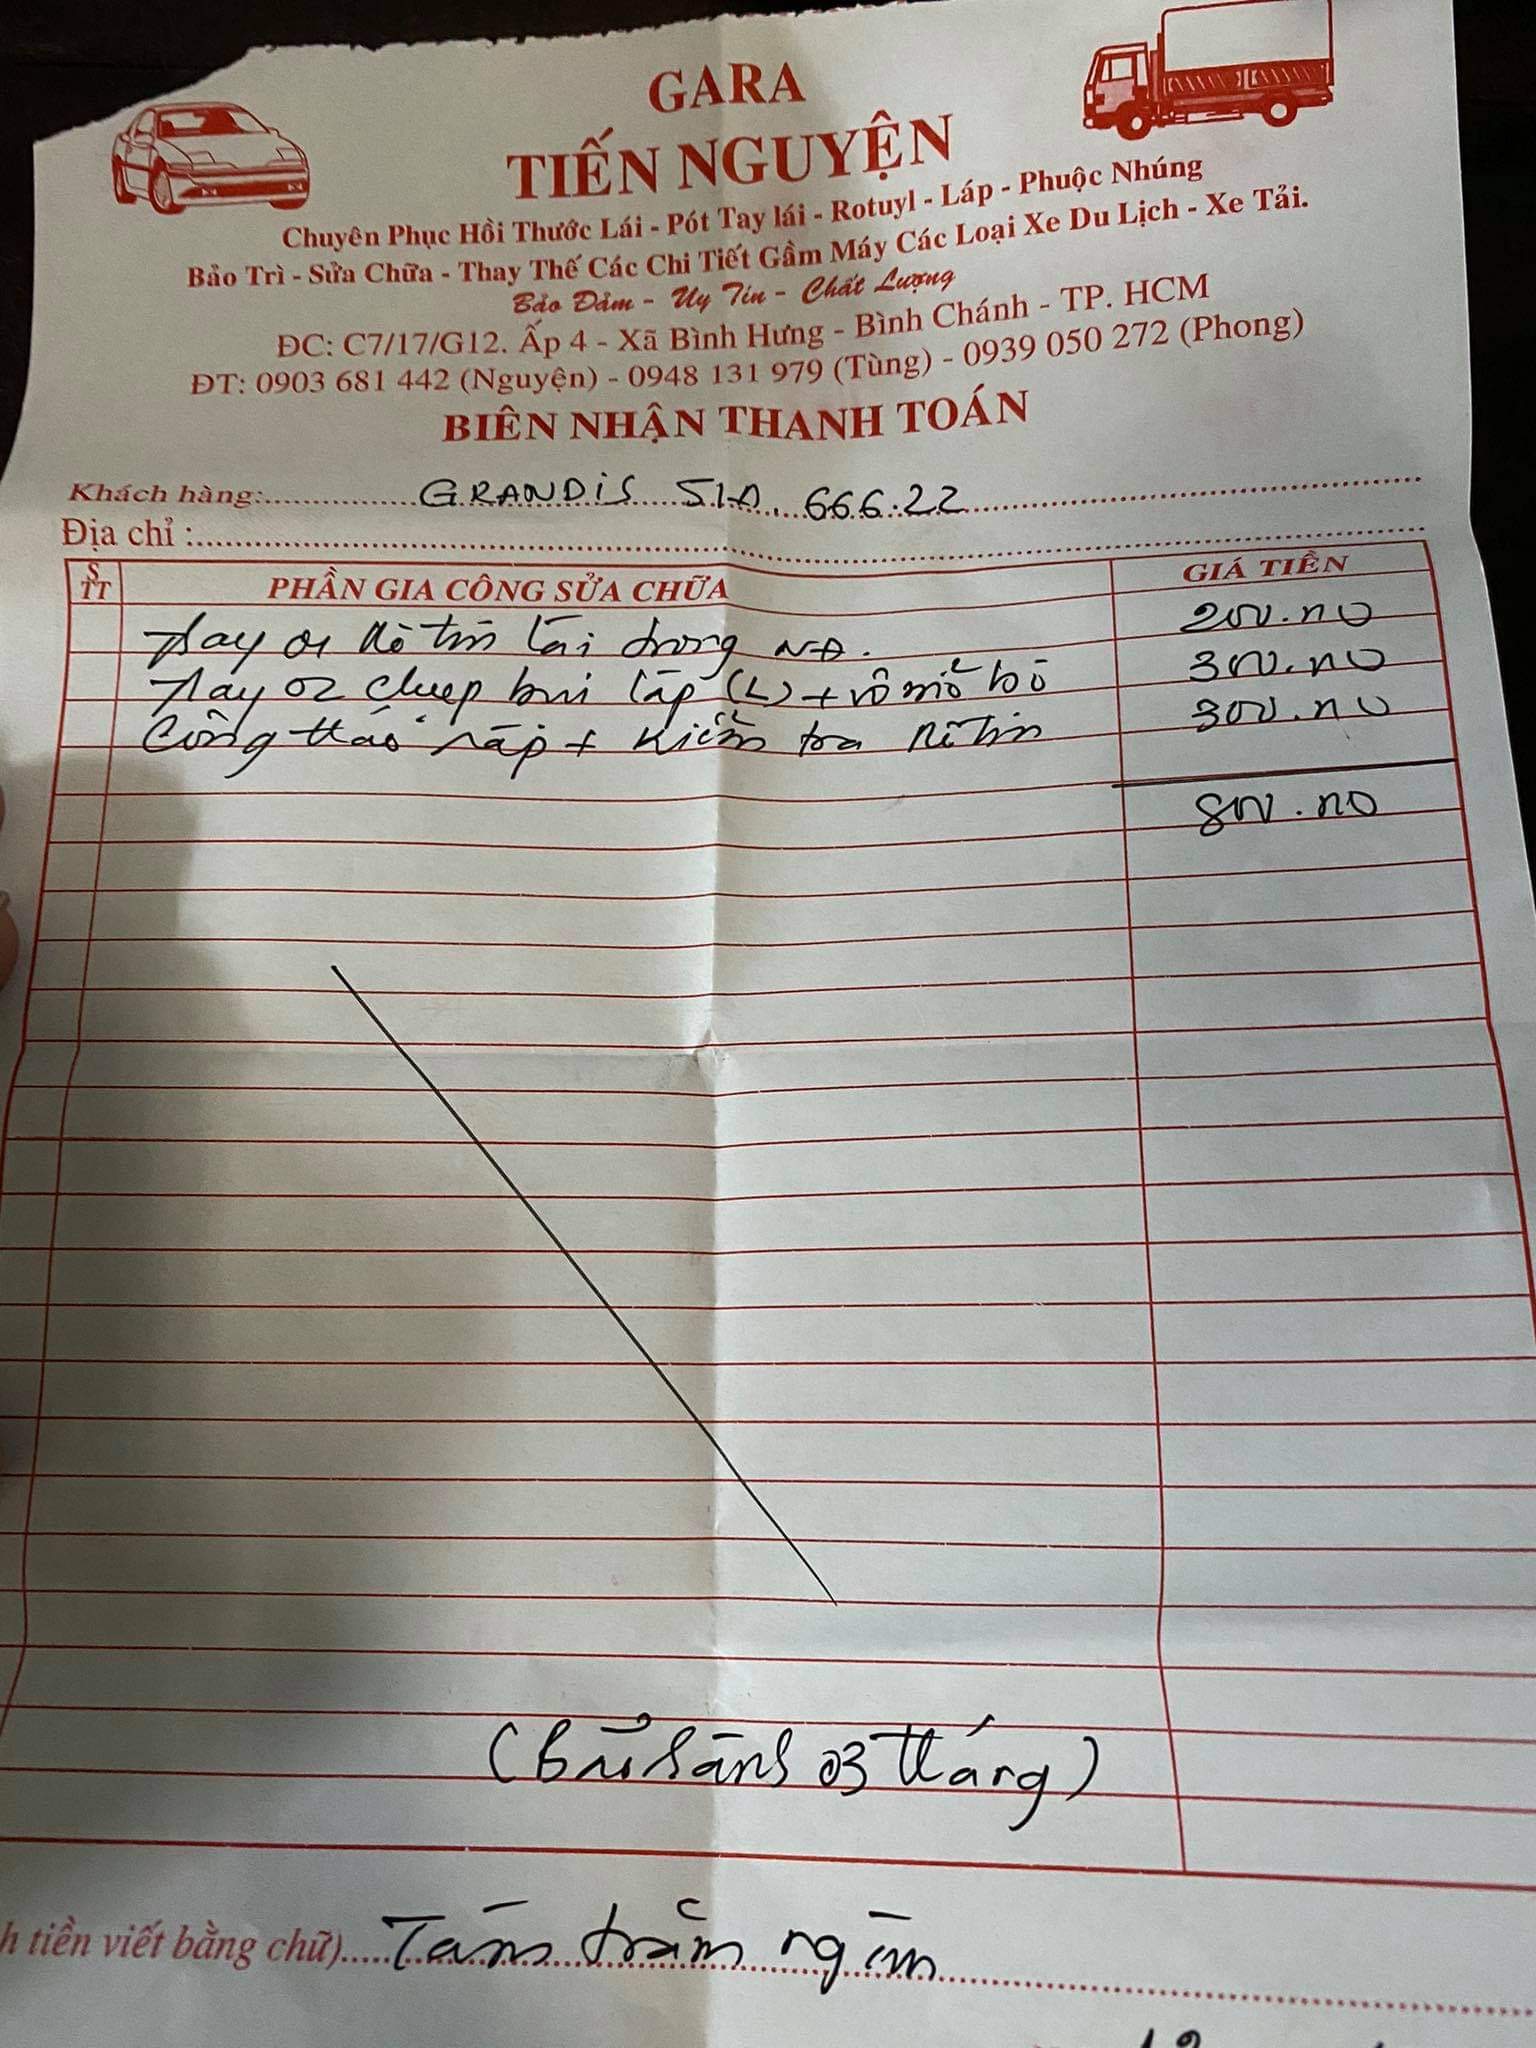 GARA
TIẾN NGUYỆN
Chuyên Phục Hồi Thước Lái - Pót Tay lái - Rotuyl - Láp - Phuộc Nhúng
Bảo Trì - Sửa Chữa - Thay Thế Các Chi Tiết Gầm Máy Các Loại Xe Du Lịch - Xe Tải.
Bảo Đảm - Uy Tín - Chất Lượng
ĐC: C7/17/G12. Ấp 4 - Xã Bình Hưng - Bình Chánh - TP. HCM
ĐT: 0903 681 442 (Nguyện) - 0948 131 979 (Tùng) - 0939 050 272 (Phong)
BIÊN NHẬN THANH TOÁN
Khách hàng: GRANDIS 51A. 666.22
Địa chỉ :
STT PHẦN GIA CÔNG SỬA CHỮA GIÁ TIỀN
Thay 01 Rô tin lái trong 200.
Thay 02 chụp bụi láp (L) + vô mỡ bò 300.
Công tháo ráp + Kiểm tra Rô tin 300.
800.
(Bảo hành 03 tháng)
h tiền viết bằng chữ) Tám trăm ngàn